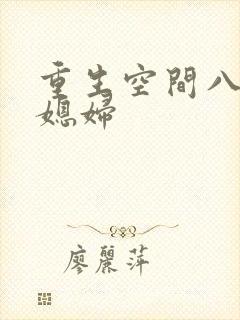 重生空間八
媳婦
廖麗萍